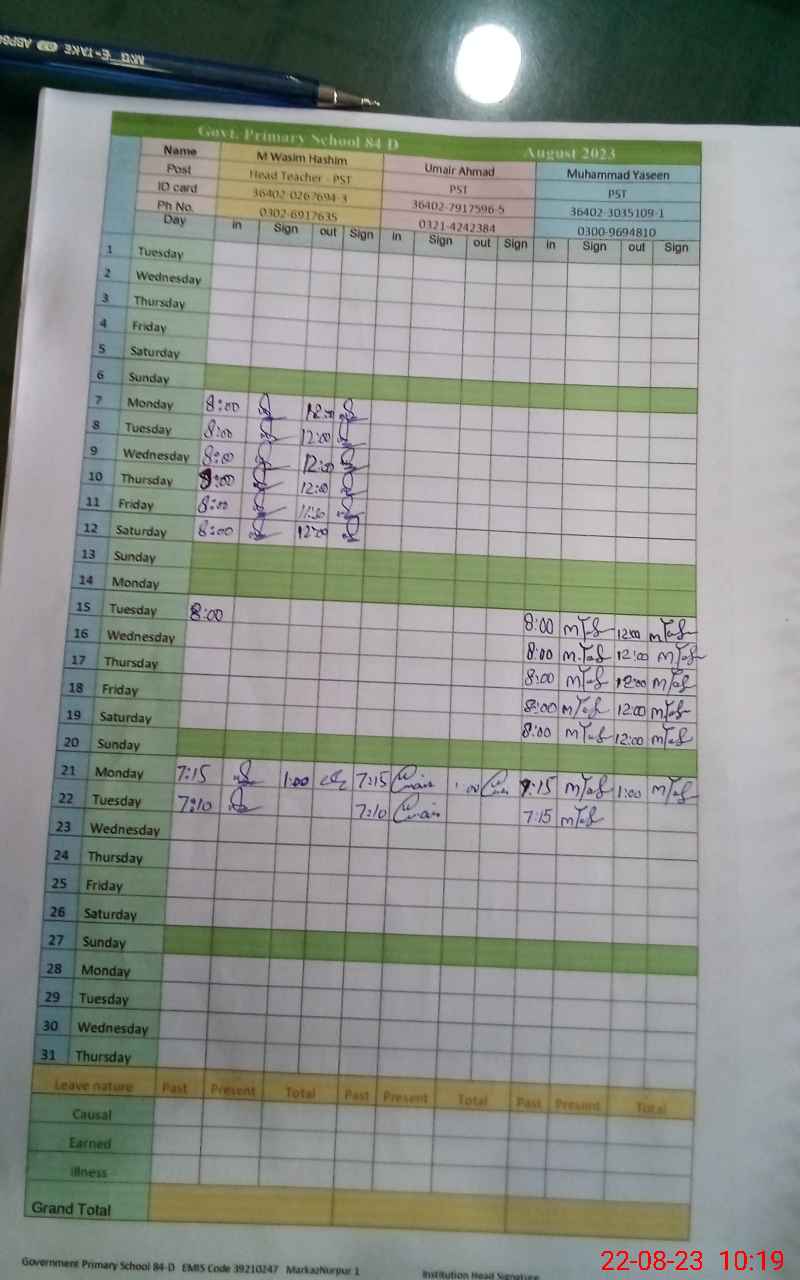 MKG E-TAKE 0.7 ABP8
Govt. Primary School 84 D August 2023
Name M Wasim Hashim Umair Ahmad Muhammad Yaseen
Post Head Teacher - PST PST PST
ID card 36402-0267694-3 36402-7917596-5 36402-3035109-1
Ph No. 0302-6917635 0321-4242384 0300-9694810
Day in Sign out Sign in Sign out Sign in Sign out Sign
1 Tuesday
2 Wednesday
3 Thursday
4 Friday
5 Saturday
6 Sunday
7 Monday 8:00 12:00
8 Tuesday 8:00 12:00
9 Wednesday 8:00 12:00
10 Thursday 8:00 12:00
11 Friday 8:00 11:30
12 Saturday 8:00 12:00
13 Sunday
14 Monday
15 Tuesday 8:00 8:00 12:00
16 Wednesday 8:00 12:00
17 Thursday 8:00 12:00
18 Friday 8:00 12:00
19 Saturday 8:00 12:00
20 Sunday
21 Monday 7:15 1:00 7:15 Umair 7:15 1:00
22 Tuesday 7:10 7:10 Umair 7:15
23 Wednesday
24 Thursday
25 Friday
26 Saturday
27 Sunday
28 Monday
29 Tuesday
30 Wednesday
31 Thursday
Leave nature Past Present Total Past Present Total Past Present Total
Causal
Earned
illness
Grand Total
Government Primary School 84-D EMIS Code 39210247 MarkazNurpur 1 Institution Head Signature
22-08-23 10:19